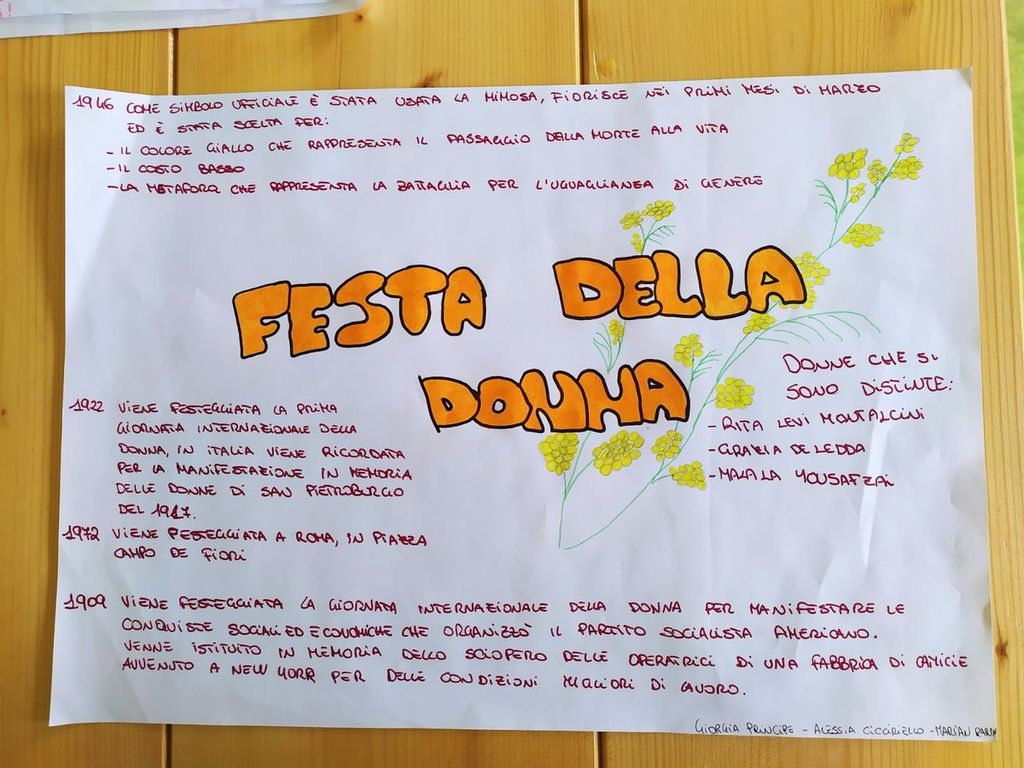 1946 COME SIMBOLO UFFICIALE È STATA USATA LA MIMOSA, FIORISCE NEI PRIMI MESI DI MARZO
ED È STATA SCELTA PER:
- IL COLORE GIALLO CHE RAPPRESENTA IL PASSAGGIO DELLA MORTE ALLA VITA
- IL COSTO BASSO
- LA METAFORA CHE RAPPRESENTA LA BATTAGLIA PER L'UGUAGLIANZA DI GENERE
FESTA DELLA
DONNA
1922 VIENE FESTEGGIATA LA PRIMA
GIORNATA INTERNAZIONALE DELLA
DONNA, IN ITALIA VIENE RICORDATA
PER LA MANIFESTAZIONE IN MEMORIA
DELLE DONNE DI SAN PIETROBURGO
DEL 1917.
1972 VIENE FESTEGGIATA A ROMA, IN PIAZZA
CAMPO DE FIORI
DONNE CHE SI
SONO DISTINTE:
- RITA LEVI MONTALCINI
- GRAZIA DELEDDA
- MALALA YOUSAFZAI
1909 VIENE FESTEGGIATA LA GIORNATA INTERNAZIONALE DELLA DONNA PER MANIFESTARE LE
CONQUISTE SOCIALI ED ECONOMICHE CHE ORGANIZZÒ IL PARTITO SOCIALISTA AMERIANO.
VENNE ISTITUITO IN MEMORIA DELLO SCIOPERO DELLE OPERATRICI DI UNA FABBRICA DI CAMICIE
AVVENUTO A NEW YORK PER DELLE CONDIZIONI MIGLIORI DI LAVORO.
GIORGIA PRINCIPE - ALESSIA CICCIRIELLO - MARIAN